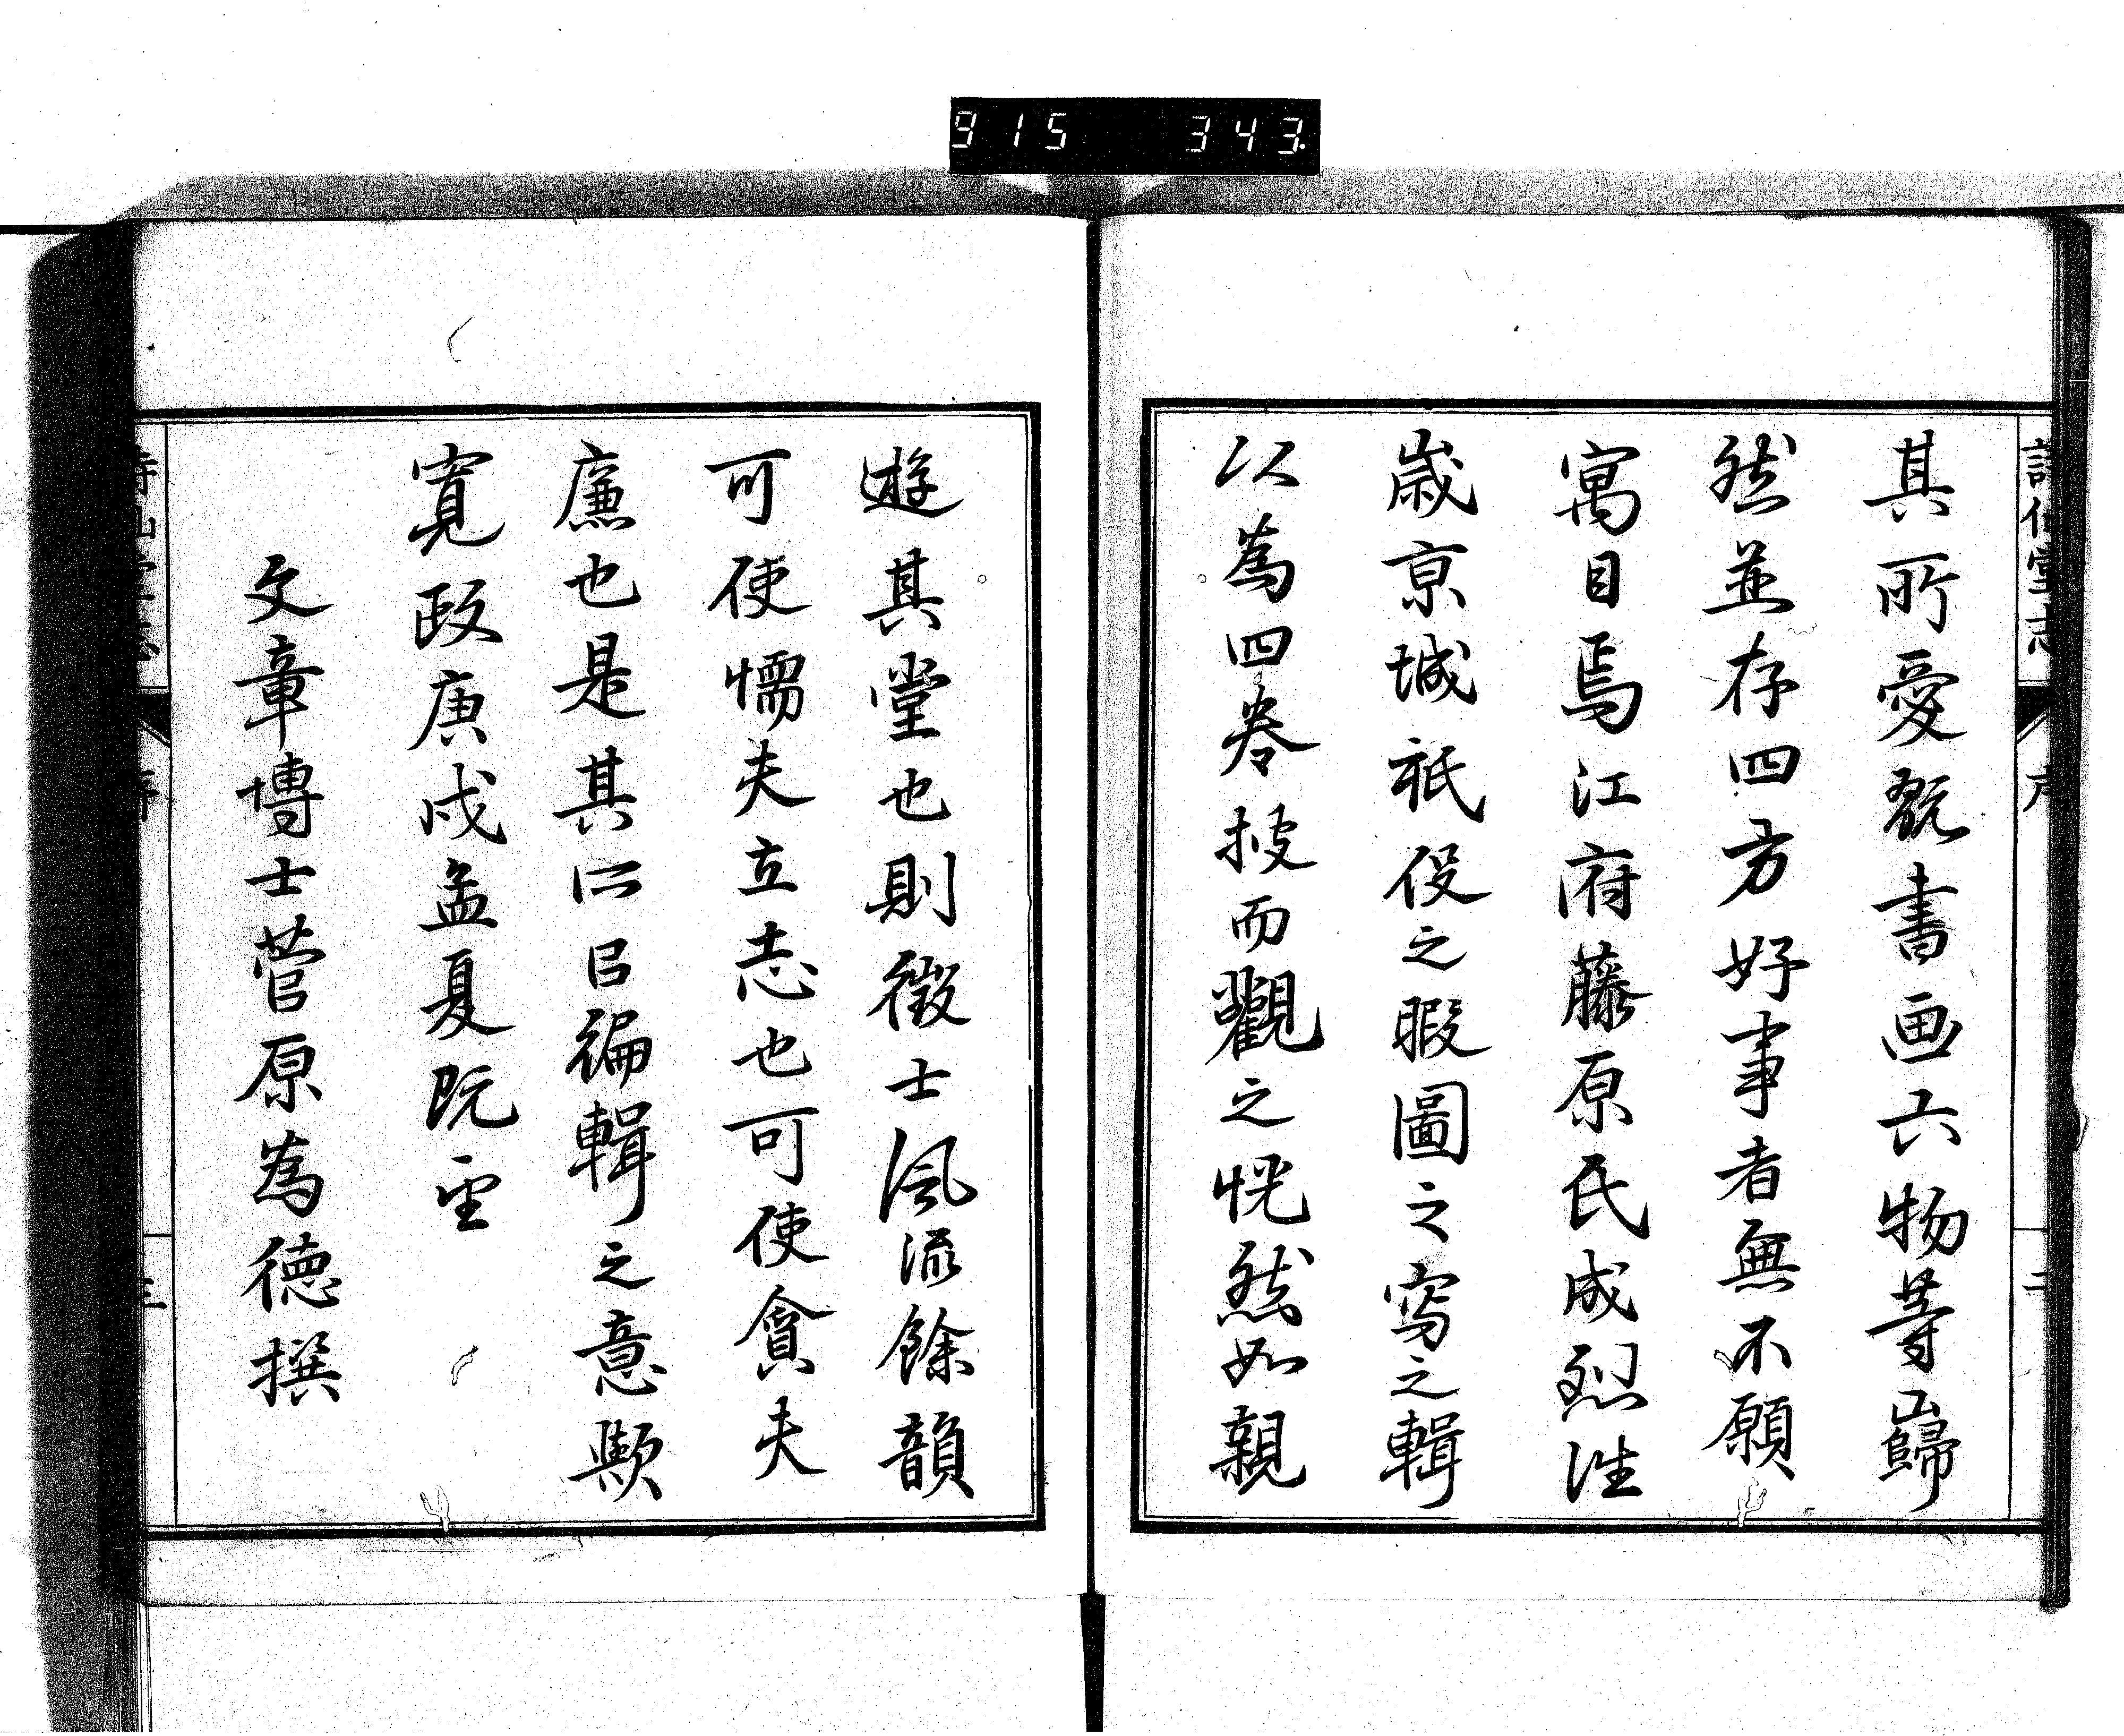 915 343
詩仙堂志 序 二
其所愛翫書画六物等巋
然並存四方好事者無不願
寓目焉江府藤原氏成烈往
歳京城祇役之暇圖之寫之輯
以為四卷披而觀之恍然如親
遊其堂也則徵士風流餘韻
可使懦夫立志也可使貪夫
廉也是其所㠯編輯之意歟
寬政庚戌孟夏既望
文章博士菅原為德撰
詩仙堂志 序 三